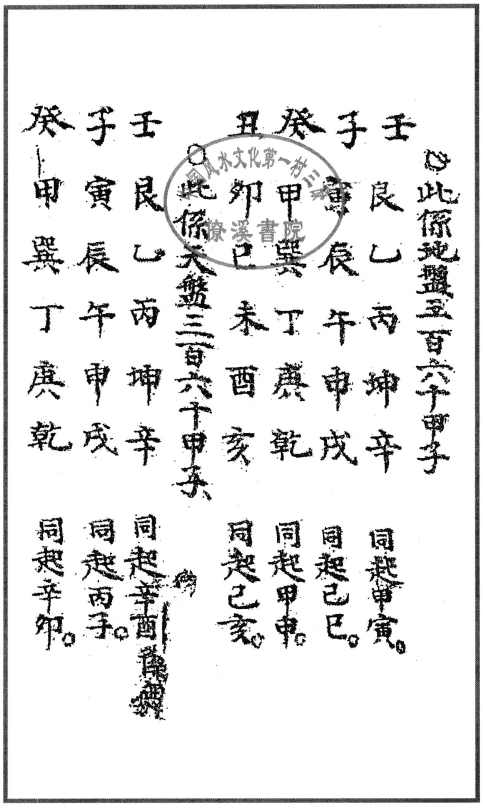 ○此係地盤三百六十甲子
壬艮乙丙坤辛 同起甲寅。
子寅辰午申戌 同起己巳。
癸甲巽丁庚乾 同起甲申。
丑卯巳未酉亥 同起己亥。
○此係天盤三百六十甲子
壬艮乙丙坤辛 同起辛酉
子寅辰午申戌 同起丙子。
癸甲巽丁庚乾 同起辛卯。
國風水文化第一村三寮
僚溪書院